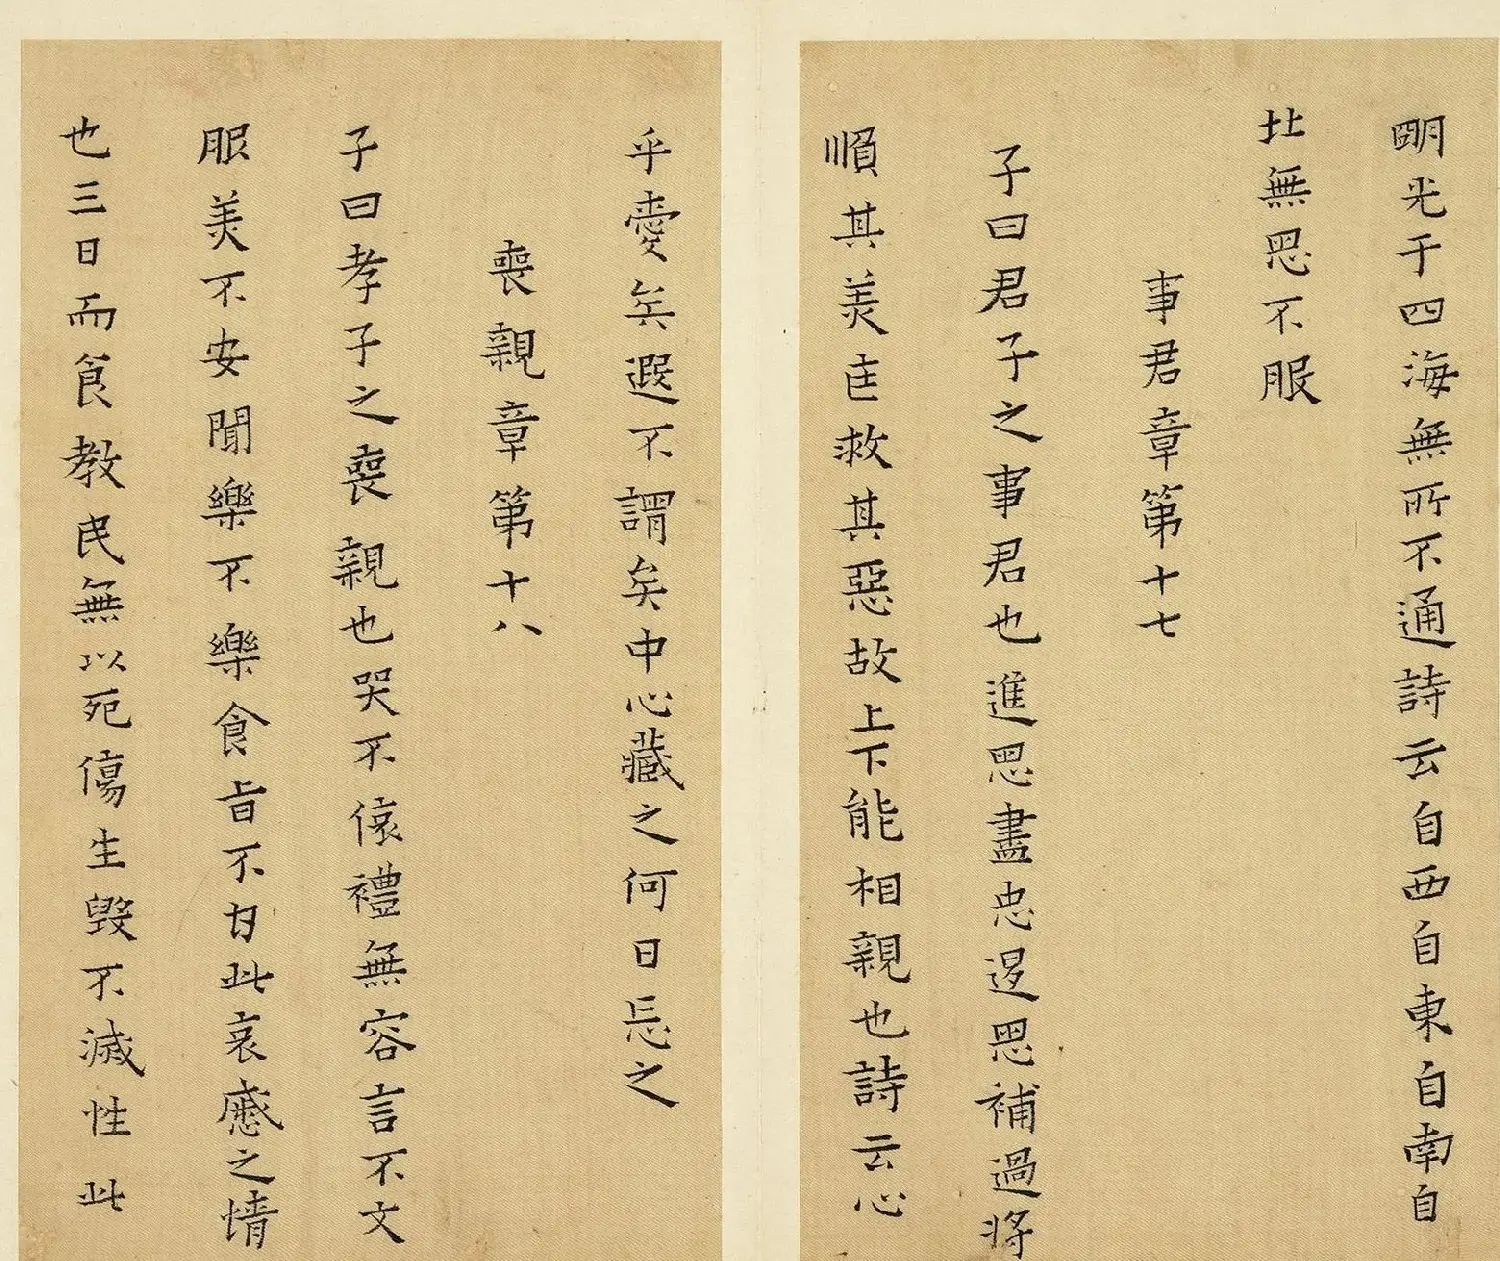 明光于四海無所不通詩云自西自東自南自
北無思不服
事君章第十七
子曰君子之事君也進思盡忠退思補過將
順其美匡救其惡故上下能相親也詩云心
乎愛矣遐不謂矣中心藏之何日忘之
喪親章第十八
子曰孝子之喪親也哭不偯禮無容言不文
服美不安聞樂不樂食旨不甘此哀慼之情
也三日而食教民無以死傷生毀不滅性此